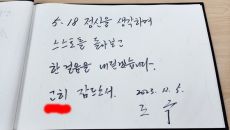 5·18 정신을 생각하며
스스로를 돌아보고
한 걸음을 내딛겠습니다.
고히 잠드소서. 2023. 11. 5.